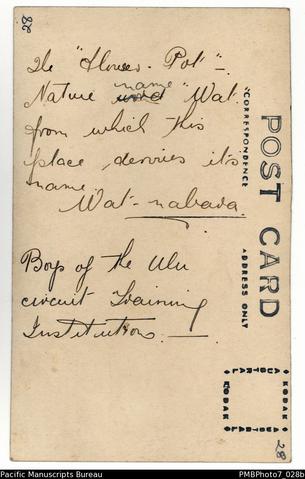 28
The "Flower-Pot"-
name
Nature word "Wat.
from which this
place, derives it's
name.
Wat-nabava.
Boys of the Ulu
circuit Training
Institution.
POST CARD
CORRESPONDENCE
ADDRESS ONLY
AUSTRAL
KODAK
AUSTRAL
KODAK
28
Pacific Manuscripts Bureau
PMBPhoto7_028b